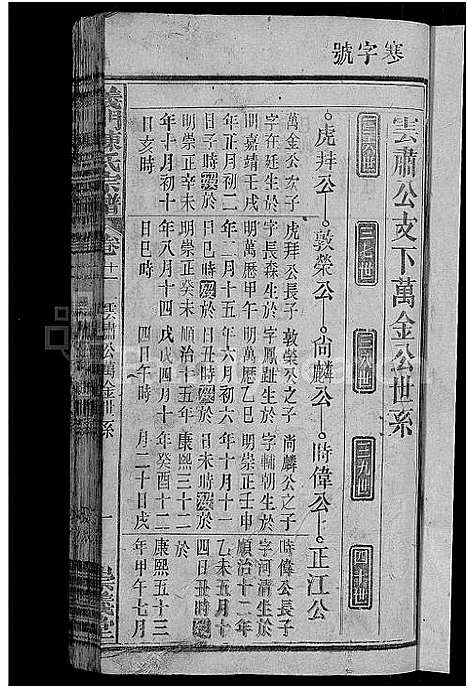 寒字號
雲肅公支下萬金公世系
三六世 三七世 三八世 三九世 四十世
虎拜公 敦榮公 尚麟公 時偉公 正江公
萬金公次子
字在廷生於
明嘉靖壬戌
年正月初二
日時歿於
明崇正辛未
年十月初十
日亥時
虎拜公長子
字長森生於
明萬曆甲午
年二月十五
日巳時歿於
年八月十四
日巳時
敦榮公之子
字鳳趾生於
明萬曆乙巳
年六月初六
日丑時歿於
順治十五年
戊戌四月十
四日午時
尚麟公之子
字輔朝生於
明崇正壬午
年十月十一
日未時歿於
康熙三十二
年癸酉十二
月二十日戌
時偉公長子
字河清生於
順治十二年
乙未五月十
四日丑時歿
於
康熙五十三
年甲午七月
義門陳氏宗譜
卷十一
雲肅公萬金世系
一